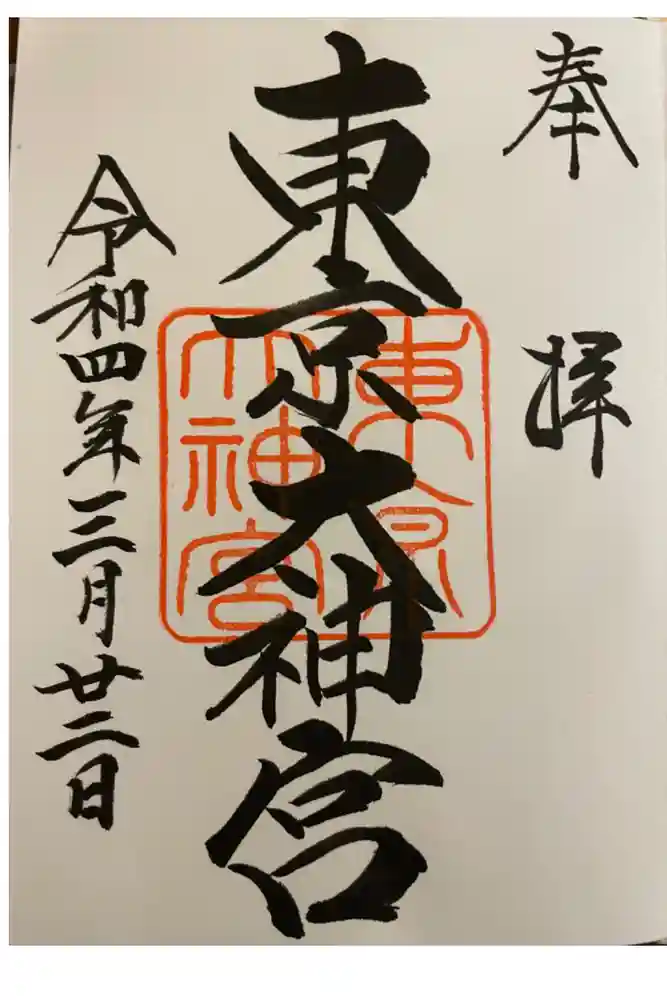 奉拝
東京大神宮
東京
大神宮
令和四年三月廿二日